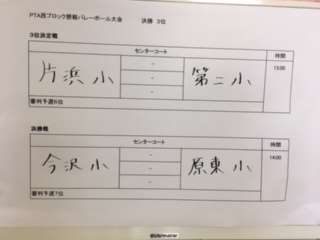 PTA西ブロック親睦バレーボール大会 決勝 3位
3位決定戦
センターコート 時間
片浜小 - 第二小 13:00
-
-
審判予選6位
決勝戦
センターコート 時間
今沢小 - 原東小 14:00
-
-
審判予選7位